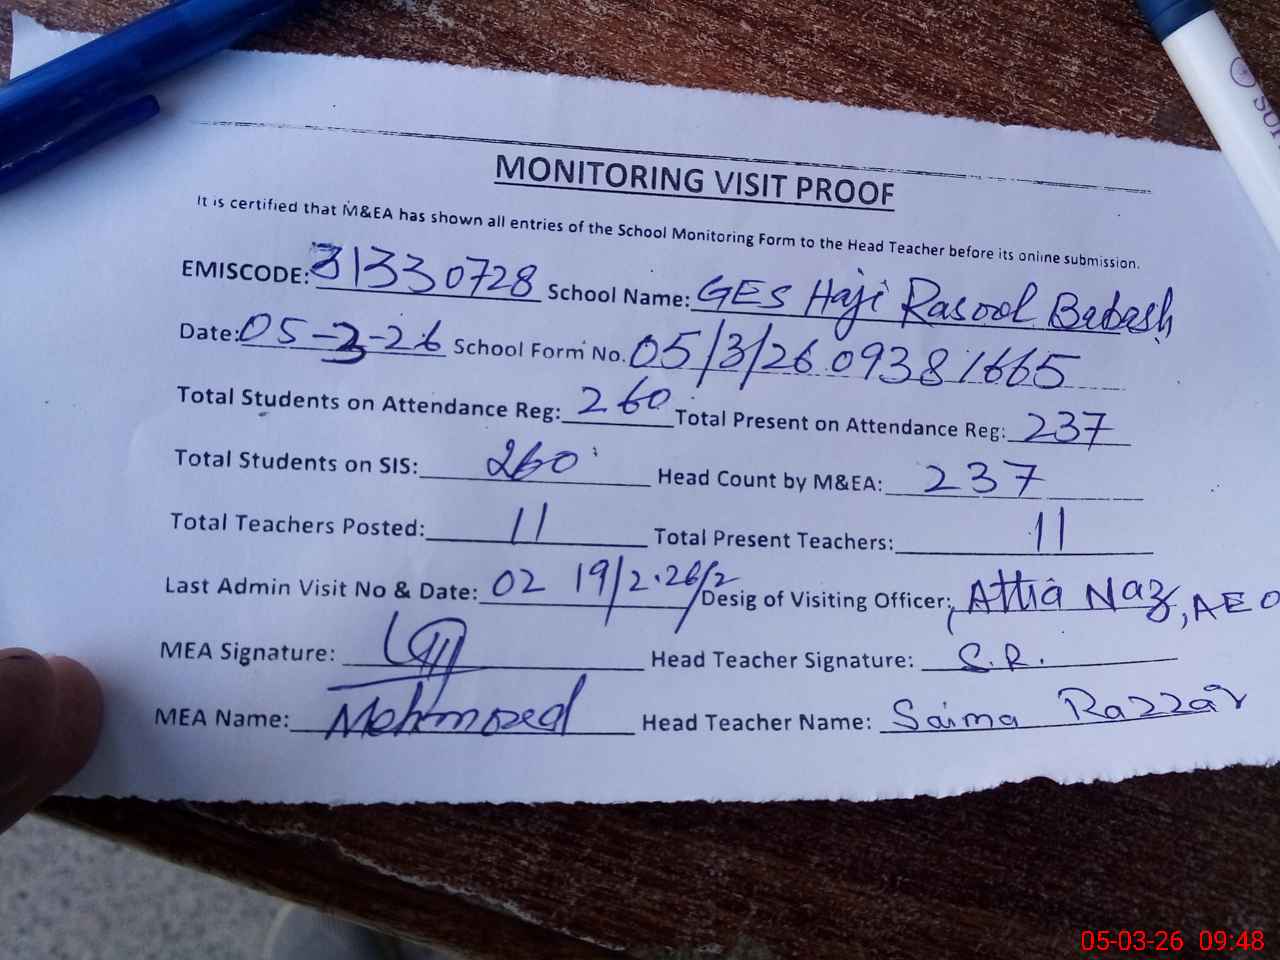 MONITORING VISIT PROOF
It is certified that M&EA has shown all entries of the School Monitoring Form to the Head Teacher before its online submission.
EMISCODE: 31330728 School Name: GES Haji Rasool Babash
Date: 05-3-26 School Form No. 05/3/26 09381665
Total Students on Attendance Reg: 260 Total Present on Attendance Reg: 237
Total Students on SIS: 260 Head Count by M&EA: 237
Total Teachers Posted: 11 Total Present Teachers: 11
Last Admin Visit No & Date: 02 19/2.26/2 Desig of Visiting Officer: Attia Naz, AEO
MEA Signature: Head Teacher Signature: S.R.
MEA Name: Mehmood Head Teacher Name: Saima Razzaq
05-03-26 09:48